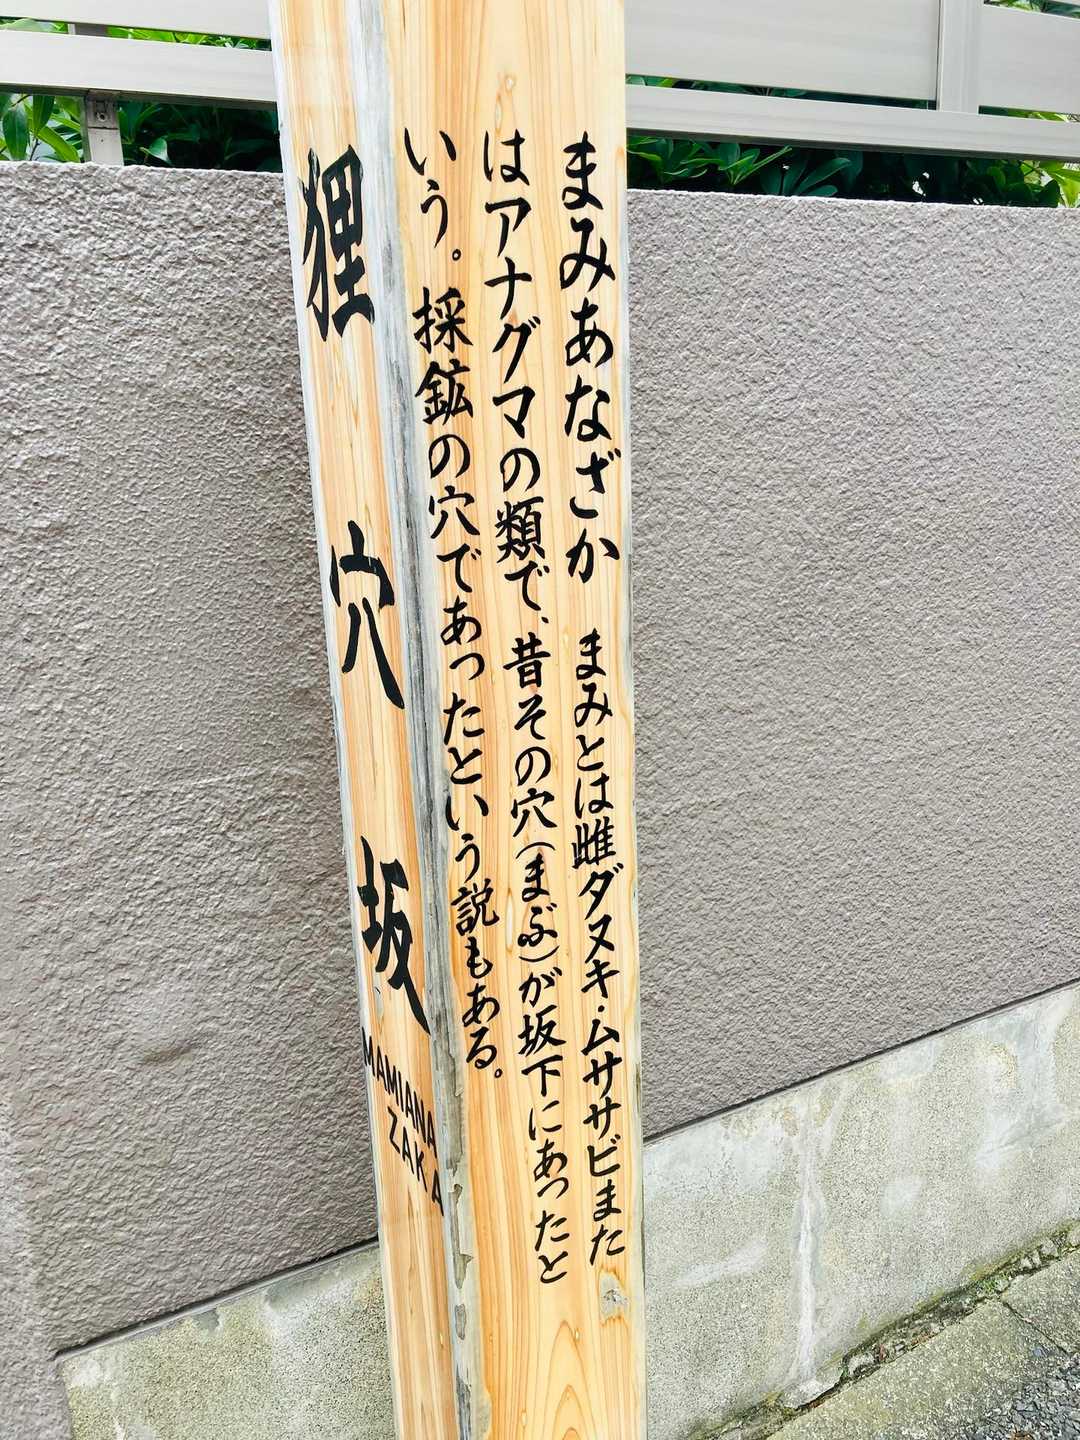 狸穴坂
MAMIANA
ZAKA
まみあなざか　まみとは雌ダヌキ・ムササビまた
はアナグマの類で、昔その穴(まぶ)が坂下にあったと
いう。採鉱の穴であったという説もある。